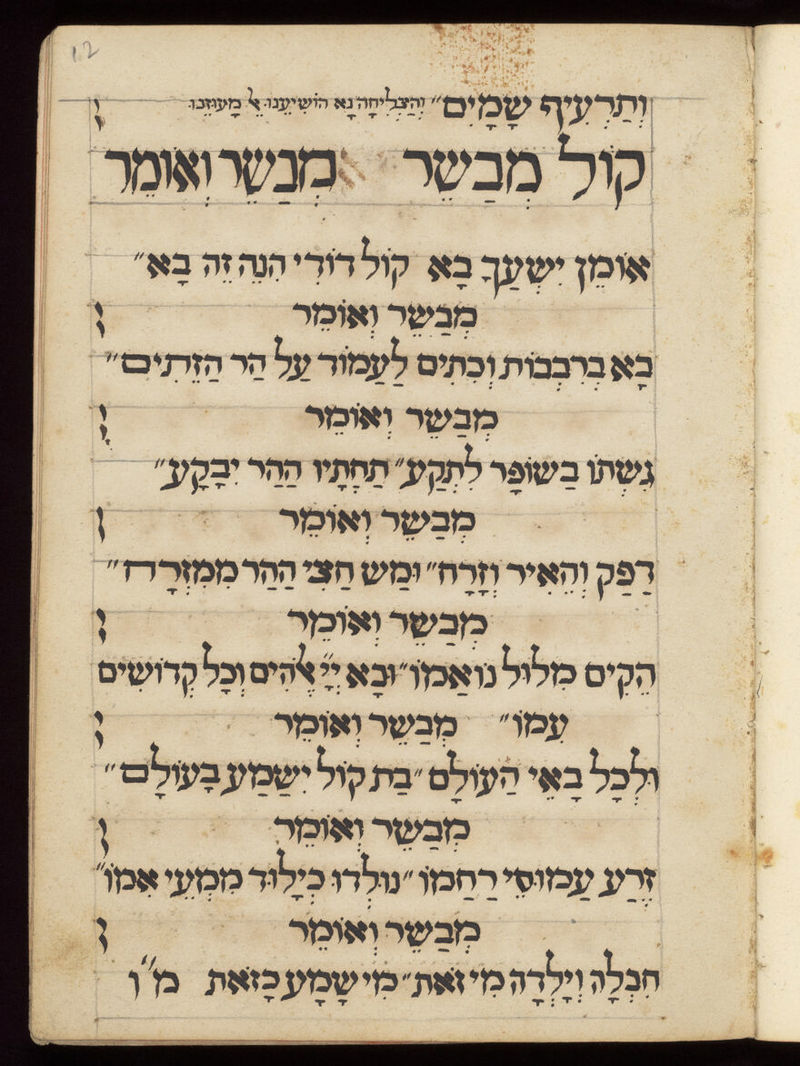 12
וְתַרְעִיף שָׁמָיִם״ וְהַצְלִיחָה נָא הוֹשִׁיעֵנוּ אֵל מָעוּזֵנוּ
קוֹל מְבַשֵּׂר מְבַשֵּׂר וְאוֹמֵר
אוֹמֶן יִשְׁעֲךָ בָּא קוֹל דּוֹדִי הִנֵּה זֶה בָּא״
מְבַשֵּׂר וְאוֹמֵר
בָּא בְרִבְבוֹת וְכִתִּים לַעֲמוֹד עַל הַר הַזֵּתִים״
מְבַשֵּׂר וְאוֹמֵר
גִּשְׁתּוֹ בַשּׁוֹפָר לִתְקַע״ תַּחְתָּיו הַהַר יִבָּקַע״
מְבַשֵּׂר וְאוֹמֵר
דָּפַק וְהֵאִיר וְזָרַח״ וּמַשׁ חֲצִי הַהַר מִמִּזְרָח״
מְבַשֵּׂר וְאוֹמֵר
הֵקִים מִלּוּל נוֹאֲמוֹ״ וּבָא יְיָ אֱלֹהִים וְכָל קְדוֹשִׁים
עִמּוֹ״ מְבַשֵּׂר וְאוֹמֵר
וּלְכָל בָּאֵי הָעוֹלָם״ בַּת קוֹל יִשָּׁמַע בָּעוֹלָם״
מְבַשֵּׂר וְאוֹמֵר
זֶרַע עֲמוּסֵי רַחֲמוֹ״ נוֹלְדוּ כְּיָלוּד מִמְּעֵי אִמּוֹ״
מְבַשֵּׂר וְאוֹמֵר
חָבְלָה וְיָלְדָה מִי זֹאת״ מִי שָׁמַע כָּזֹאת מ״ו